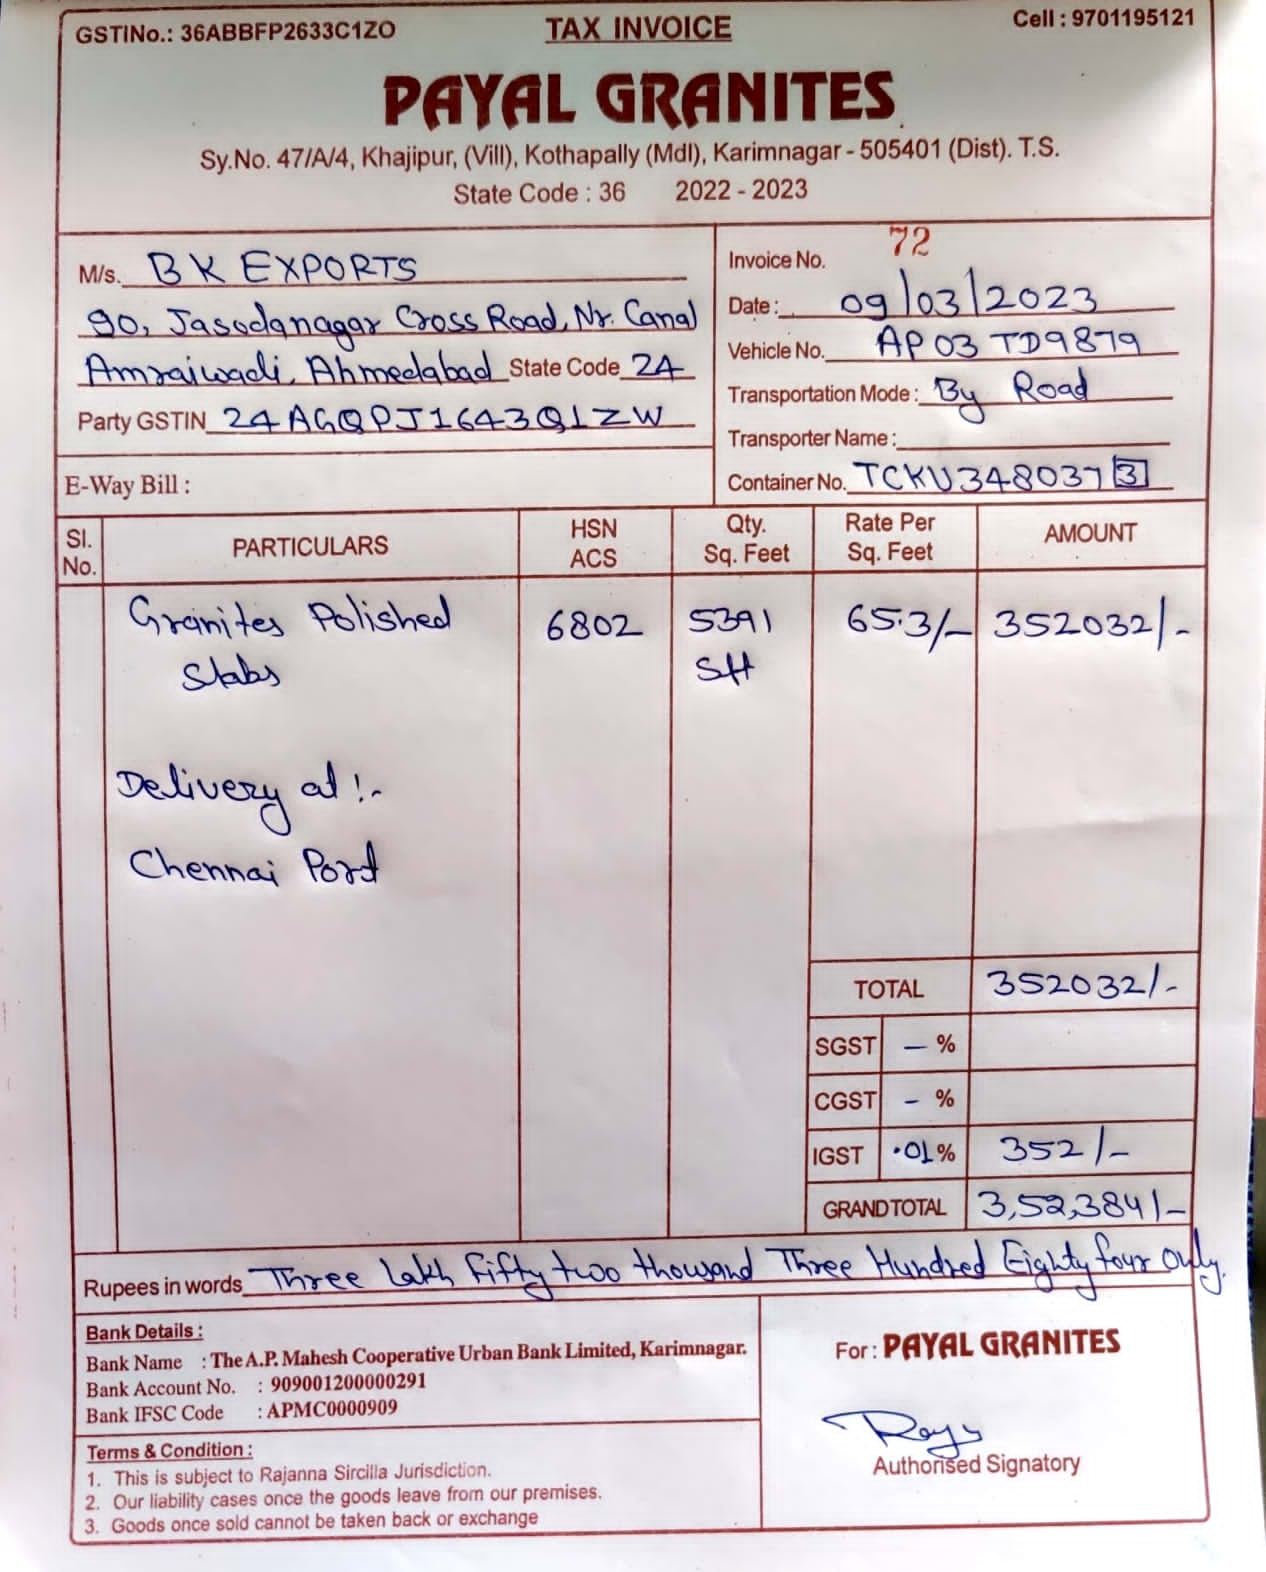 GSTINo.: 36ABBFP2633C1ZO TAX INVOICE Cell : 9701195121
PAYAL GRANITES
Sy.No. 47/A/4, Khajipur, (Vill), Kothapally (Mdl), Karimnagar - 505401 (Dist). T.S.
State Code : 36 2022 - 2023
M/s. BK EXPORTS
90, Jasodanagar Cross Road, Nr. Canal
Amraiwadi, Ahmedabad State Code 24
Party GSTIN 24AGQPJ1643Q1ZW
E-Way Bill :
Invoice No. 72
Date : 09/03/2023
Vehicle No. AP03 TD9879
Transportation Mode : By Road
Transporter Name :
Container No. TCKU348037 3
Sl. No. PARTICULARS HSN ACS Qty. Sq. Feet Rate Per Sq. Feet AMOUNT
Granites Polished 6802 5391 65.3/- 352032/-
Slabs Sft
Delivery at :-
Chennai Port
TOTAL 352032/-
SGST - %
CGST - %
IGST .01% 352/-
GRAND TOTAL 3,52,384/-
Rupees in words Three Lakh Fifty two thousand Three Hundred Eighty four Only.
Bank Details :
Bank Name : The A.P. Mahesh Cooperative Urban Bank Limited, Karimnagar.
Bank Account No. : 909001200000291
Bank IFSC Code : APMC0000909
Terms & Condition :
1. This is subject to Rajanna Sircilla Jurisdiction.
2. Our liability cases once the goods leave from our premises.
3. Goods once sold cannot be taken back or exchange
For : PAYAL GRANITES
Authorised Signatory